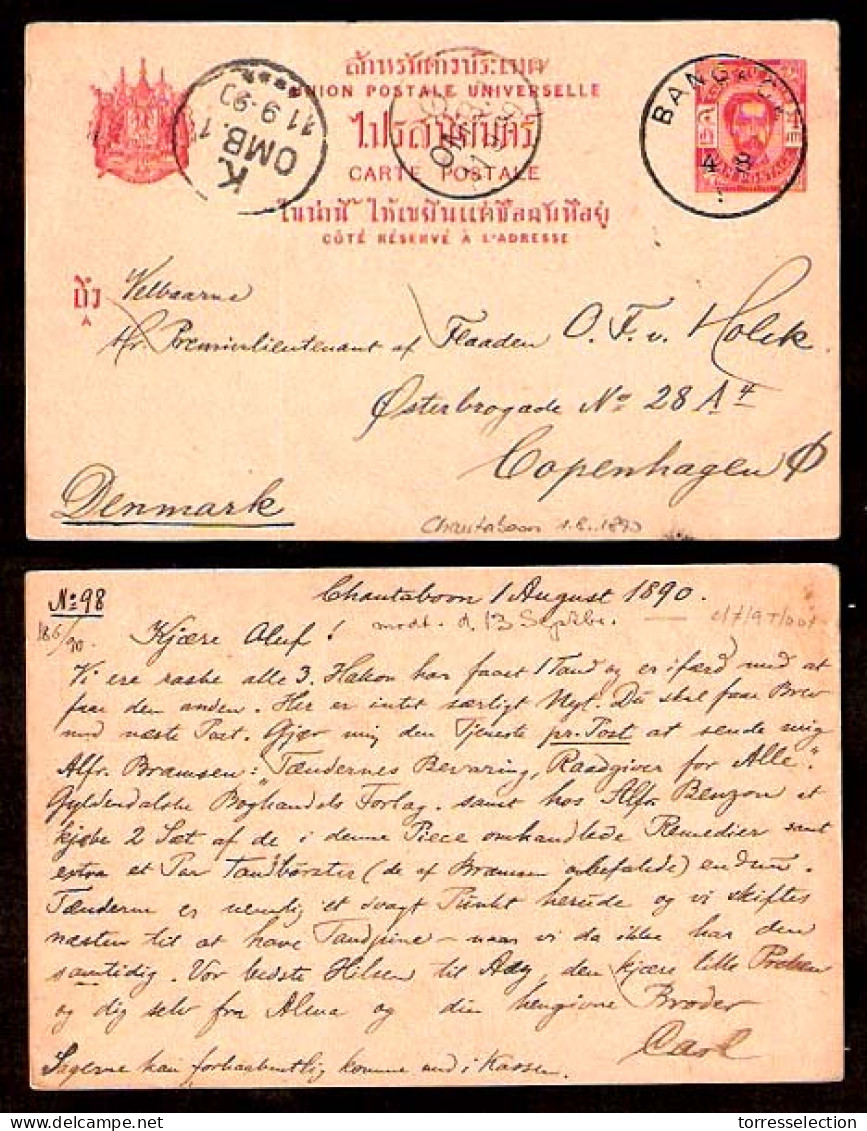 UNION POSTALE UNIVERSELLE
CARTE POSTALE
CÔTÉ RÉSERVÉ À L'ADRESSE
K.
OMB. 1
11 9-90
BANGKOK
4 8
ถึง
A
Velbaarne
Hr. Premierlieutenant af Flaaden O. F. v. Holck.
Østerbrogade No 28 A 4
Copenhagen Ø
Denmark
Chantaboon 1.8.1890
No 98
Chantaboon 1 August 1890.
modt. d. 13 Septbr.
18 6/90.
Kjære Oluf!
Vi ere raske alle 3. Hakon har faaet 1 Tand og er ifærd med at
faae den anden. Her er intet særligt Nyt. Du skal faae Brev
med næste Post. Gjør mig den Tjeneste pr. Post at sende mig
Alfr. Bramsen: "Tændernes Bevaring, Raadgiver for Alle".
Gyldendalske Boghandels Forlag. samt hos Alfr. Benzon at
kjøbe 2 Sæt af de i denne Piece omhandlede Remedier samt
extra et Par Tandbørster (de af Bramsen anbefalede)
Tænderne er nemlig et svagt Punkt herude og vi skiftes
næsten til at have Tandpine - naar vi da ikke har den
samtidig. Vor bedste Hilsen til den kjære lille
og dig selv fra Alma og din hengivne Broder
Carl
Sagerne kan forhaabentlig komme med i Kassen.
torresselection